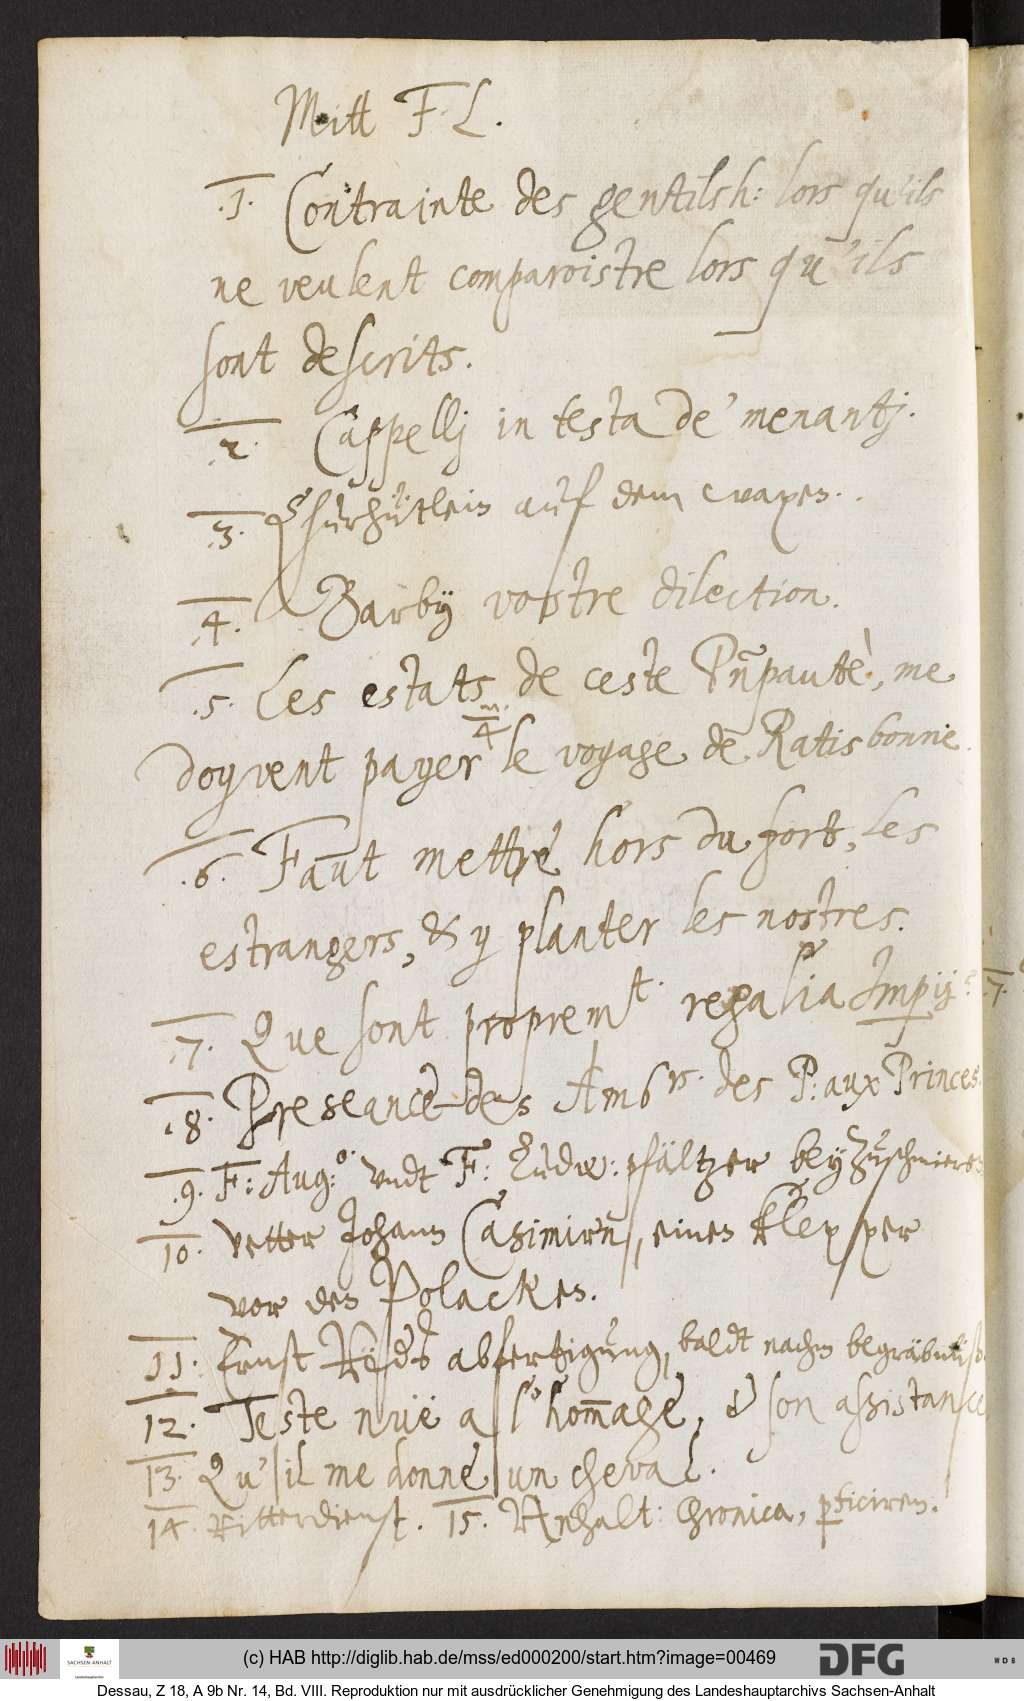 Mitt F. L.
.1. Contrainte des gentilsh: lors qu'ils
ne veulent comparoistre lors qu'ils
sont descrits.
.2. Cappellj in testa de' menantj.
.3. Churhütlein auf dem wapen.
.4. Barbÿ vostre dilection.
.5. Les estats de ceste Prñpautè, me
m.
4
doyvent payer le voyage de Ratisbonne.
.6. Faut mettre hors du fort, les
estrangers, & y planter les nostres.
.7. Que sont propremt. regalia Impÿ?
.8. Preseance des Ambrs. des P: aux Princes.
.9. F: Aug: undt F: Ludw: pfältzer
10. Vetter Johann Casimirn, einen klepper
vor den Polacken.
11. Ernst abfertigung, baldt nachm begräbnüß.
12. Teste nuë a l'hom̄age, & son assistance
13. Qu'il me donne un cheval.
14. Ritterdienst. 15. Anhalt: Chronica, pticiren.
(c) HAB http://diglib.hab.de/mss/ed000200/start.htm?image=00469
SACHSEN-ANHALT
DFG
WDB
Dessau, Z 18, A 9b Nr. 14, Bd. VIII. Reproduktion nur mit ausdrücklicher Genehmigung des Landeshauptarchivs Sachsen-Anhalt